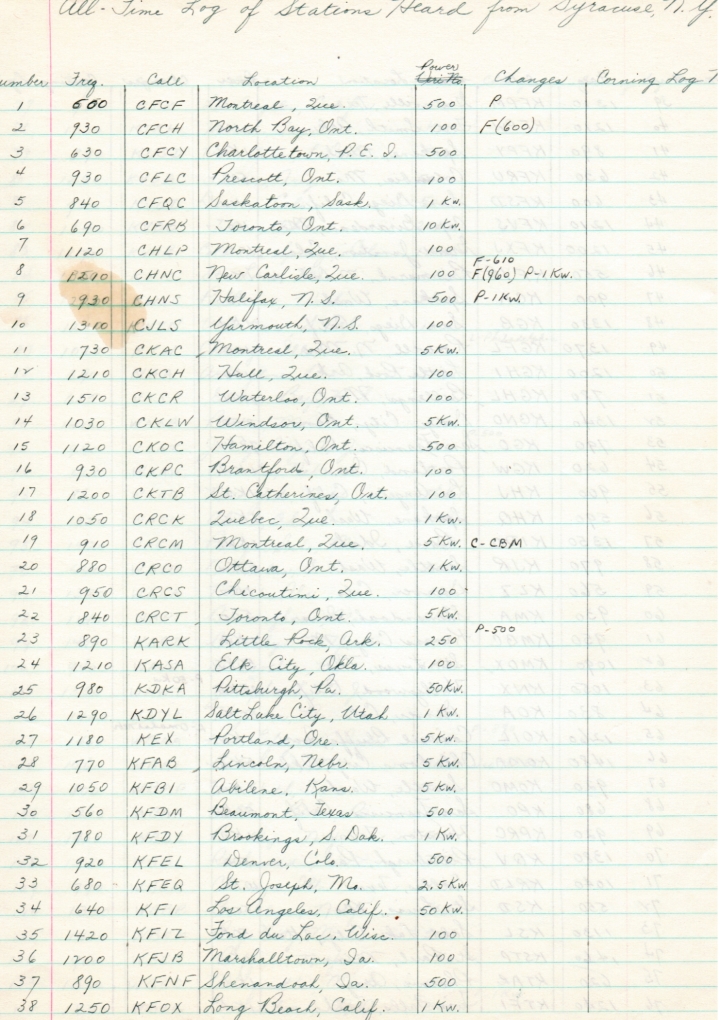 All-Time Log of Stations Heard from Syracuse, N.Y.
umber Freq. Call Location Power Changes Corning Log
1 600 CFCF Montreal, Que. 500 P
2 930 CFCH North Bay, Ont. 100 F(600)
3 630 CFCY Charlottetown, P.E.I. 500
4 930 CFLC Prescott, Ont. 100
5 840 CFQC Saskatoon, Sask. 1 Kw.
6 690 CFRB Toronto, Ont. 10 Kw.
7 1120 CHLP Montreal, Que. 100 F-610
8 1210 CHNC New Carlisle, Que. 100 F(960) P-1Kw.
9 930 CHNS Halifax, N.S. 500 P-1Kw.
10 1310 CJLS Yarmouth, N.S. 100
11 730 CKAC Montreal, Que. 5 Kw.
12 1210 CKCH Hull, Que. 100
13 1510 CKCR Waterloo, Ont. 100
14 1030 CKLW Windsor, Ont. 5 Kw.
15 1120 CKOC Hamilton, Ont. 500
16 930 CKPC Brantford, Ont. 100
17 1200 CKTB St. Catherines, Ont. 100
18 1050 CRCK Quebec, Que. 1 Kw.
19 910 CRCM Montreal, Que. 5 Kw. C-CBM
20 880 CRCO Ottawa, Ont. 1 Kw.
21 950 CRCS Chicoutimi, Que. 100
22 840 CRCT Toronto, Ont. 5 Kw.
23 890 KARK Little Rock, Ark. 250 P-500
24 1210 KASA Elk City, Okla. 100
25 980 KDKA Pittsburgh, Pa. 50 Kw.
26 1290 KDYL Salt Lake City, Utah 1 Kw.
27 1180 KEX Portland, Ore. 5 Kw.
28 770 KFAB Lincoln, Nebr. 5 Kw.
29 1050 KFBI Abilene, Kans. 5 Kw.
30 560 KFDM Beaumont, Texas 500
31 780 KFDY Brookings, S. Dak. 1 Kw.
32 920 KFEL Denver, Colo. 500
33 680 KFEQ St. Joseph, Mo. 2.5 Kw.
34 640 KFI Los Angeles, Calif. 50 Kw.
35 1420 KFIZ Fond du Lac, Wisc. 100
36 1200 KFJB Marshalltown, Ia. 100
37 890 KFNF Shenandoah, Ia. 500
38 1250 KFOX Long Beach, Calif. 1 Kw.